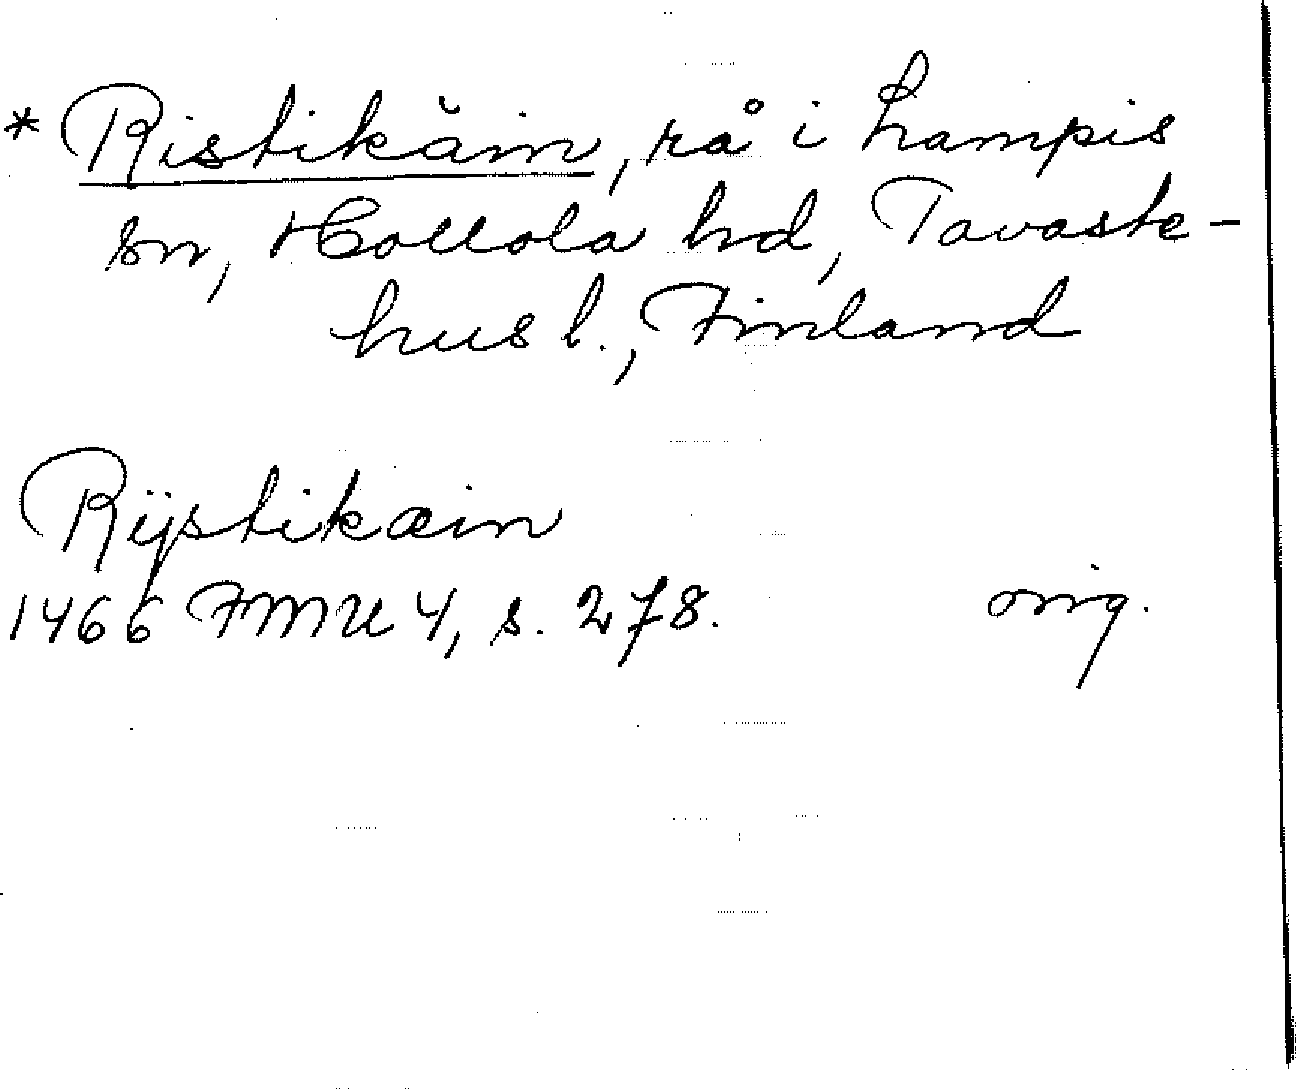 * Ristikäin, rå i Lampis
sn, Hollola hd, Tavaste-
hus l., Finland
Rijstikæin
1466 FMU 4, s. 278. orig.